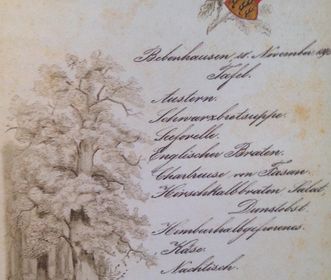 Bebenhausen, 18. November
Tafel.
Austern.
Schwarzbrotsuppe.
Seeforelle.
Englischer Braten.
Chartreuse von Fasan.
Hirschkalbbraten Salat
Dunstobst.
Himbeerhalbgefrorenes.
Käse.
Nachtisch.